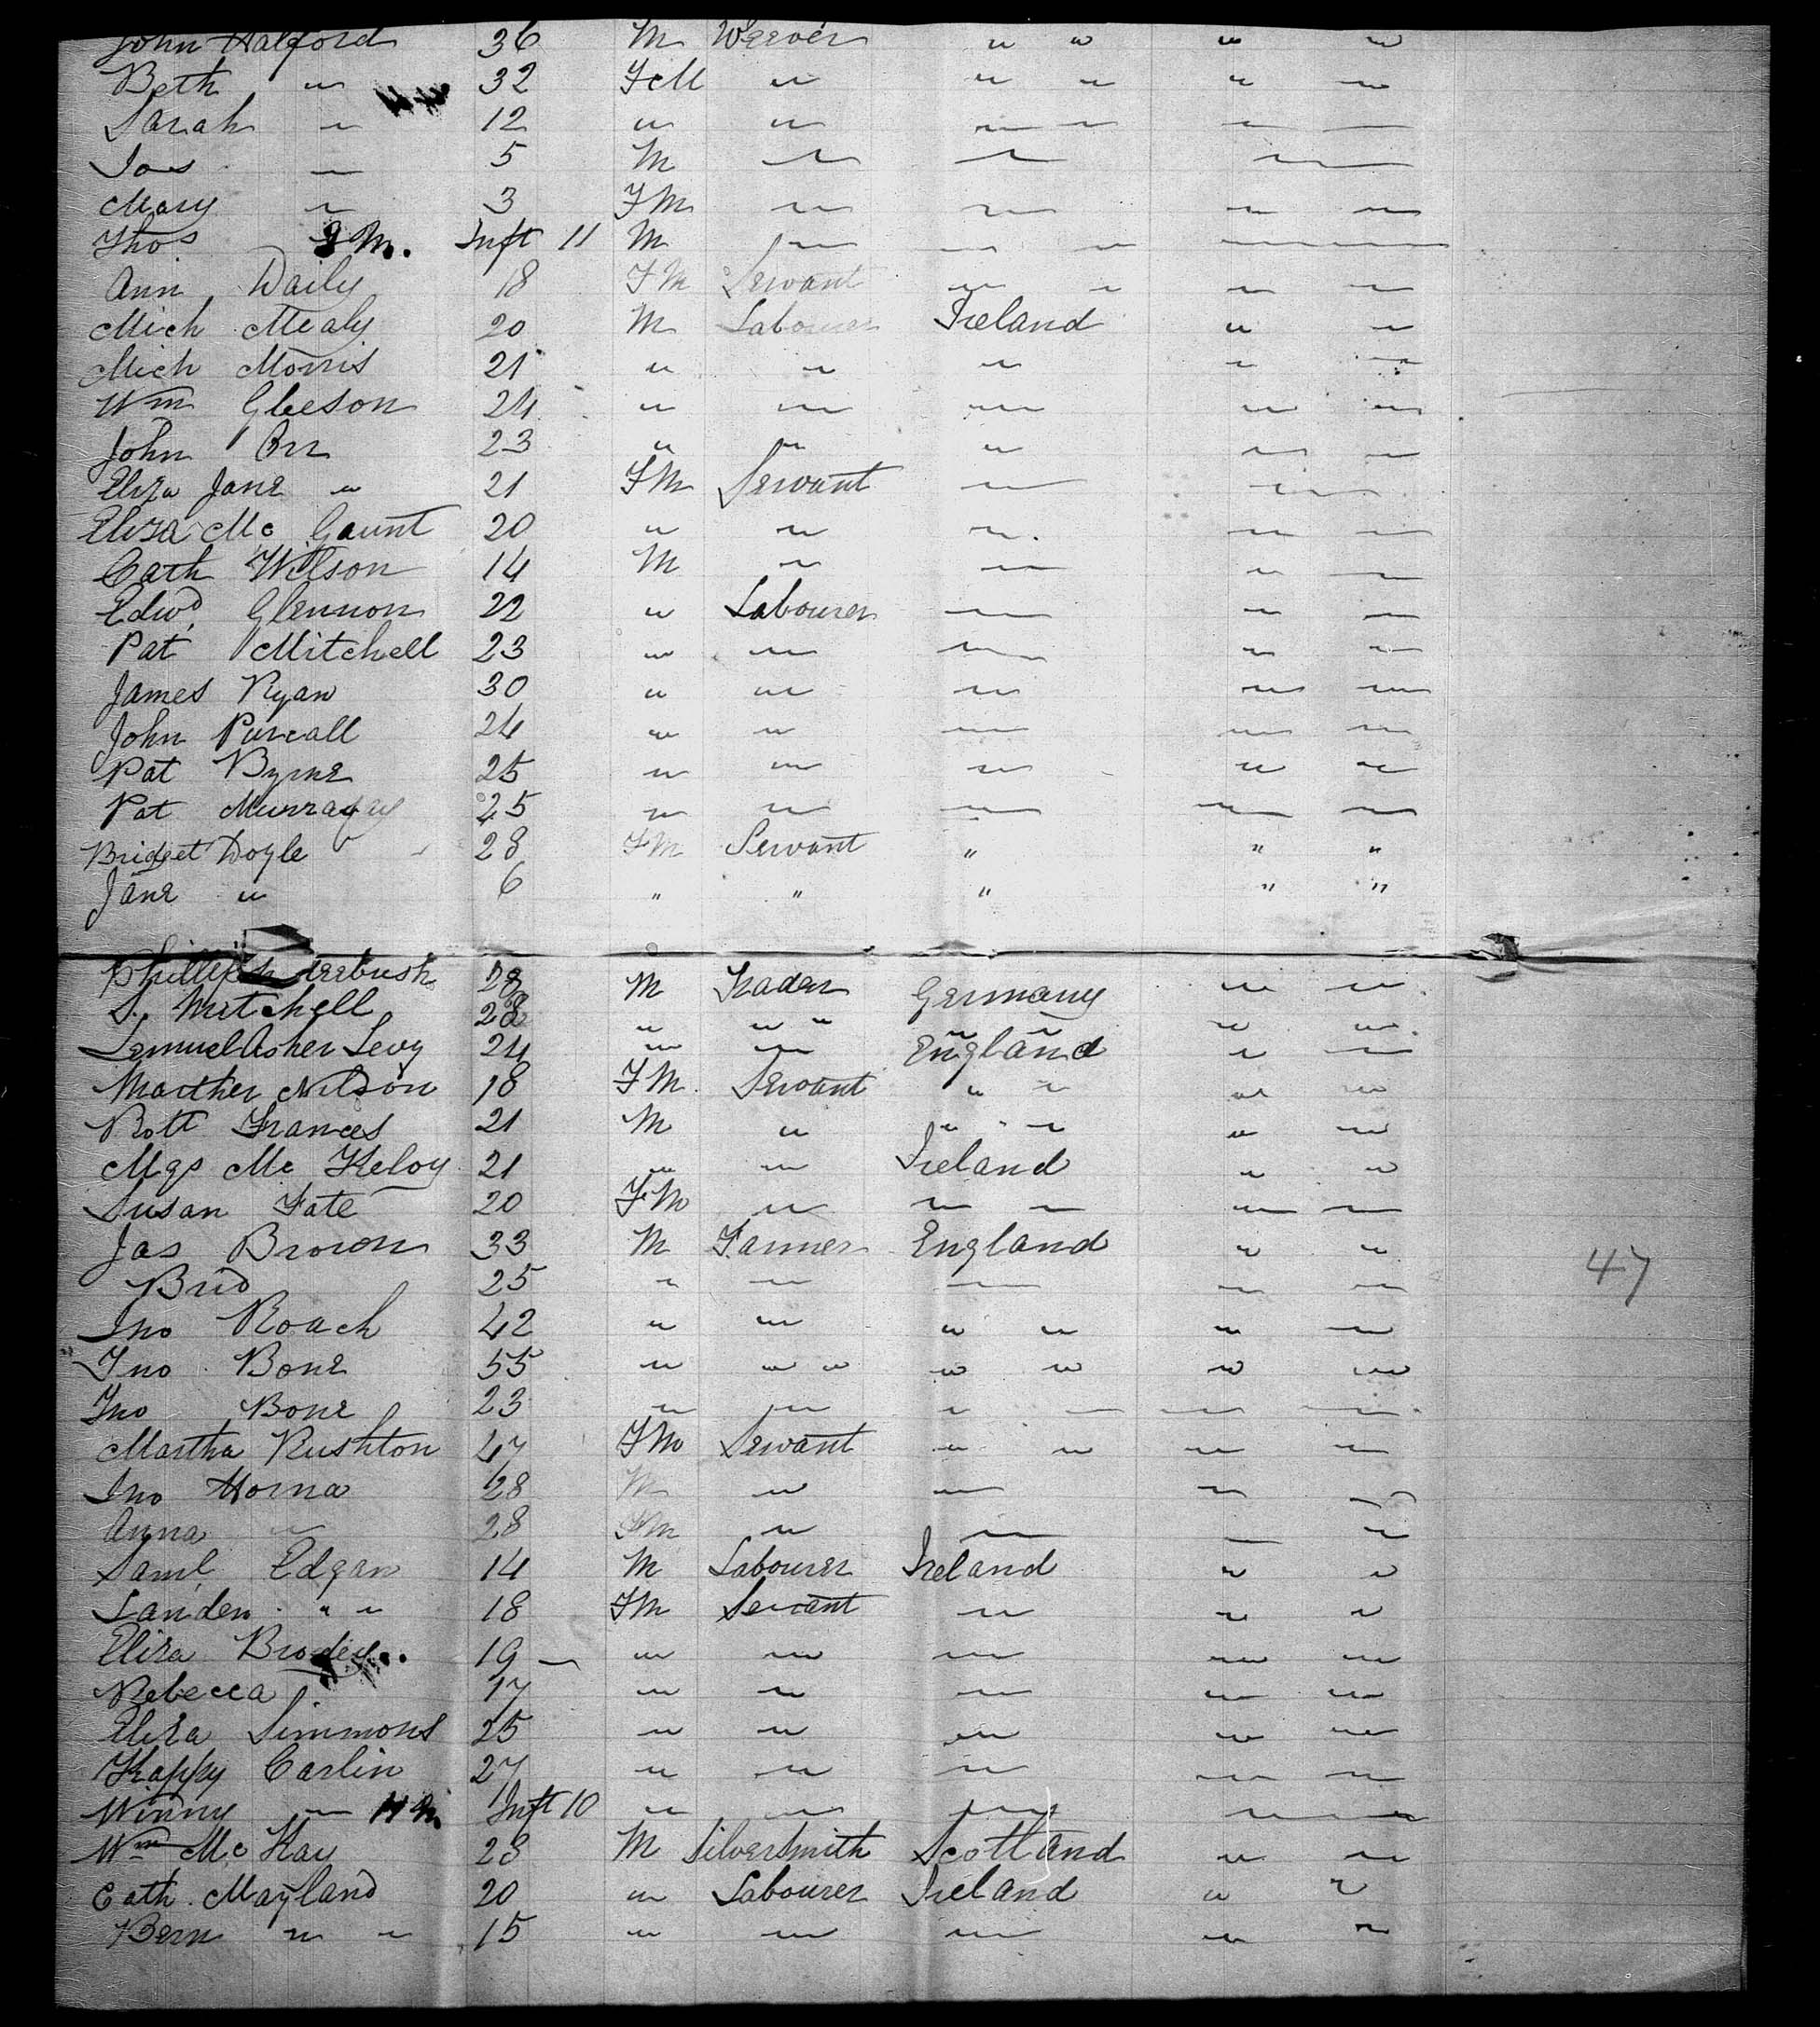 John Halford 36 M Weaver " " " "
Beth " 32 FeM " " " " "
Sarah " 12 " " " " " "
Jas " 5 M " " "
Mary " 3 FM " " " "
Thos. " M. Inft 11 M " " " "
Ann Daily 18 FM Servant " " " "
Mich Mealy 20 M Labourer Ireland " "
Mich Morris 21 " " " " "
Wm Gleeson 24 " " " " "
John Orr 23 " " " " "
Eliza Jane " 21 FM Servant " "
Eliza Mc Gaunt 20 " " " " "
Cath Wilson 14 M " " " "
Edwd. Glennon 22 " Labourer " " "
Pat Mitchell 23 " " " " "
James Ryan 30 " " " " "
John Purcall 24 " " " " "
Pat Byrne 25 " " " " "
Pat Murray 25 " " " " "
Bridget Doyle 28 FM Servant " " "
Jane " 6 " " " " "
Phillip 28 M Trader Germany " "
S. Mitchell 28 " " " " " " "
Samuel Asher Levy 24 " " England " "
Marther Nelson 18 FM. Servant " " " "
Robt Frances 21 M " " " " "
Mgs Mc Keloy 21 " " Ireland " "
Susan Tate 20 FM " " " " "
Jas Brown 33 M Farmer England " "
Brid 25 " " " " "
Jno Roach 42 " " " " " "
Jno Bone 55 " " " " " " "
Jno Bone 23 " " " " " "
Martha Rushton 47 FM Servant " " " "
Jno Horna 28 M " " " "
Anna " 28 FM " " " "
Saml. Edgar 14 M Labourer Ireland " "
Landen " " 18 FM Servant " " "
Eliza Brodey 19 " " " " "
Rebecca 17 " " " " "
Eliza Simmons 25 " " " " "
Kappy Carlin 27 " " " " "
Winny " Inft 10 " " " "
Wm Mc Kay 28 M Silversmith Scotland " "
Cath. Mayland 20 " Labourer Ireland " "
Bern " " 15 " " " " "
47